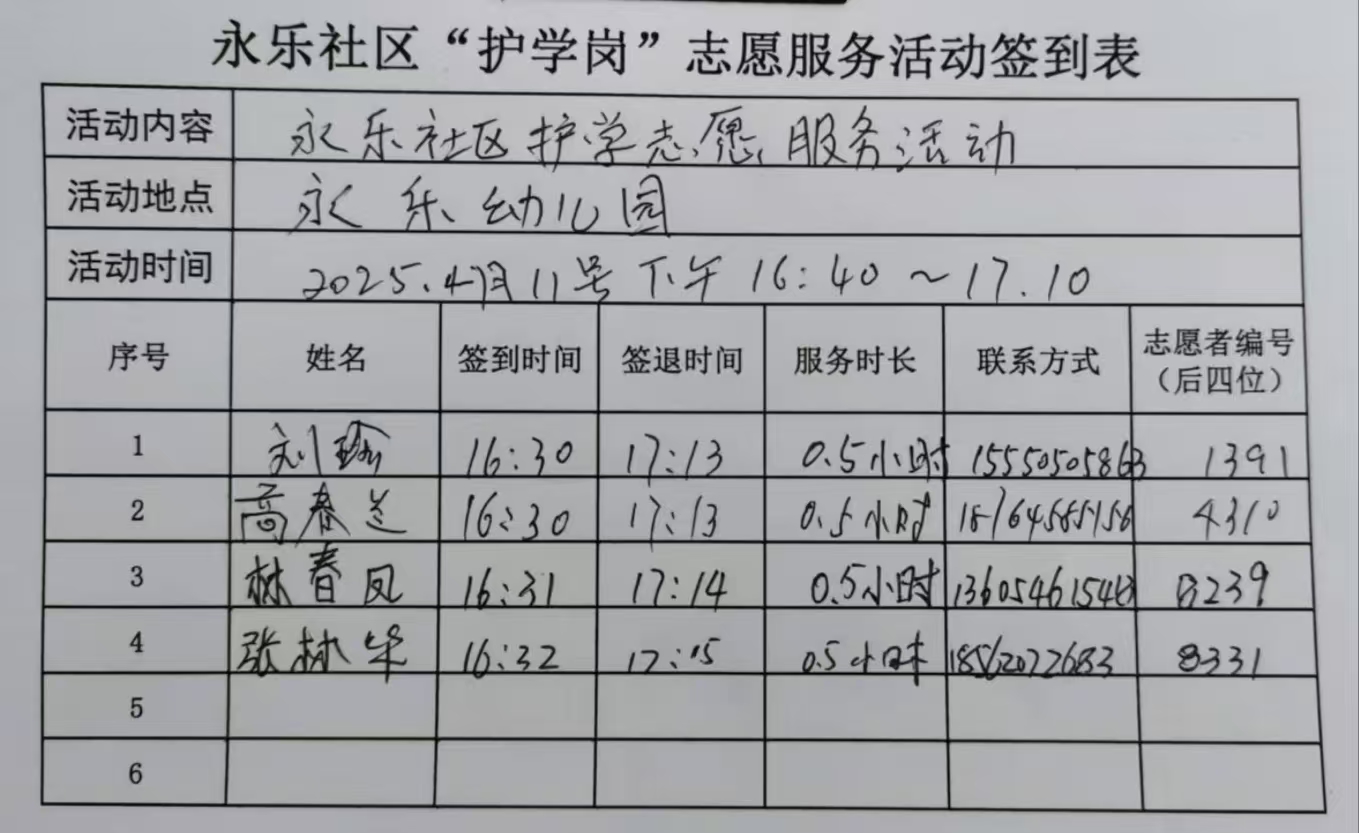 永乐社区“护学岗”志愿服务活动签到表
活动内容 永乐社区护学志愿服务活动
活动地点 永乐幼儿园
活动时间 2025.4月11号下午16:40~17.10
序号 姓名 签到时间 签退时间 服务时长 联系方式 志愿者编号（后四位）
1 刘 16:30 17:13 0.5小时 15550505863 1391
2 高春兰 16:30 17:13 0.5小时 4310
3 林春凤 16:31 17:14 0.5小时 13605461543 8239
4 张林华 16:32 17:15 0.5小时 18562022683 8331
5
6